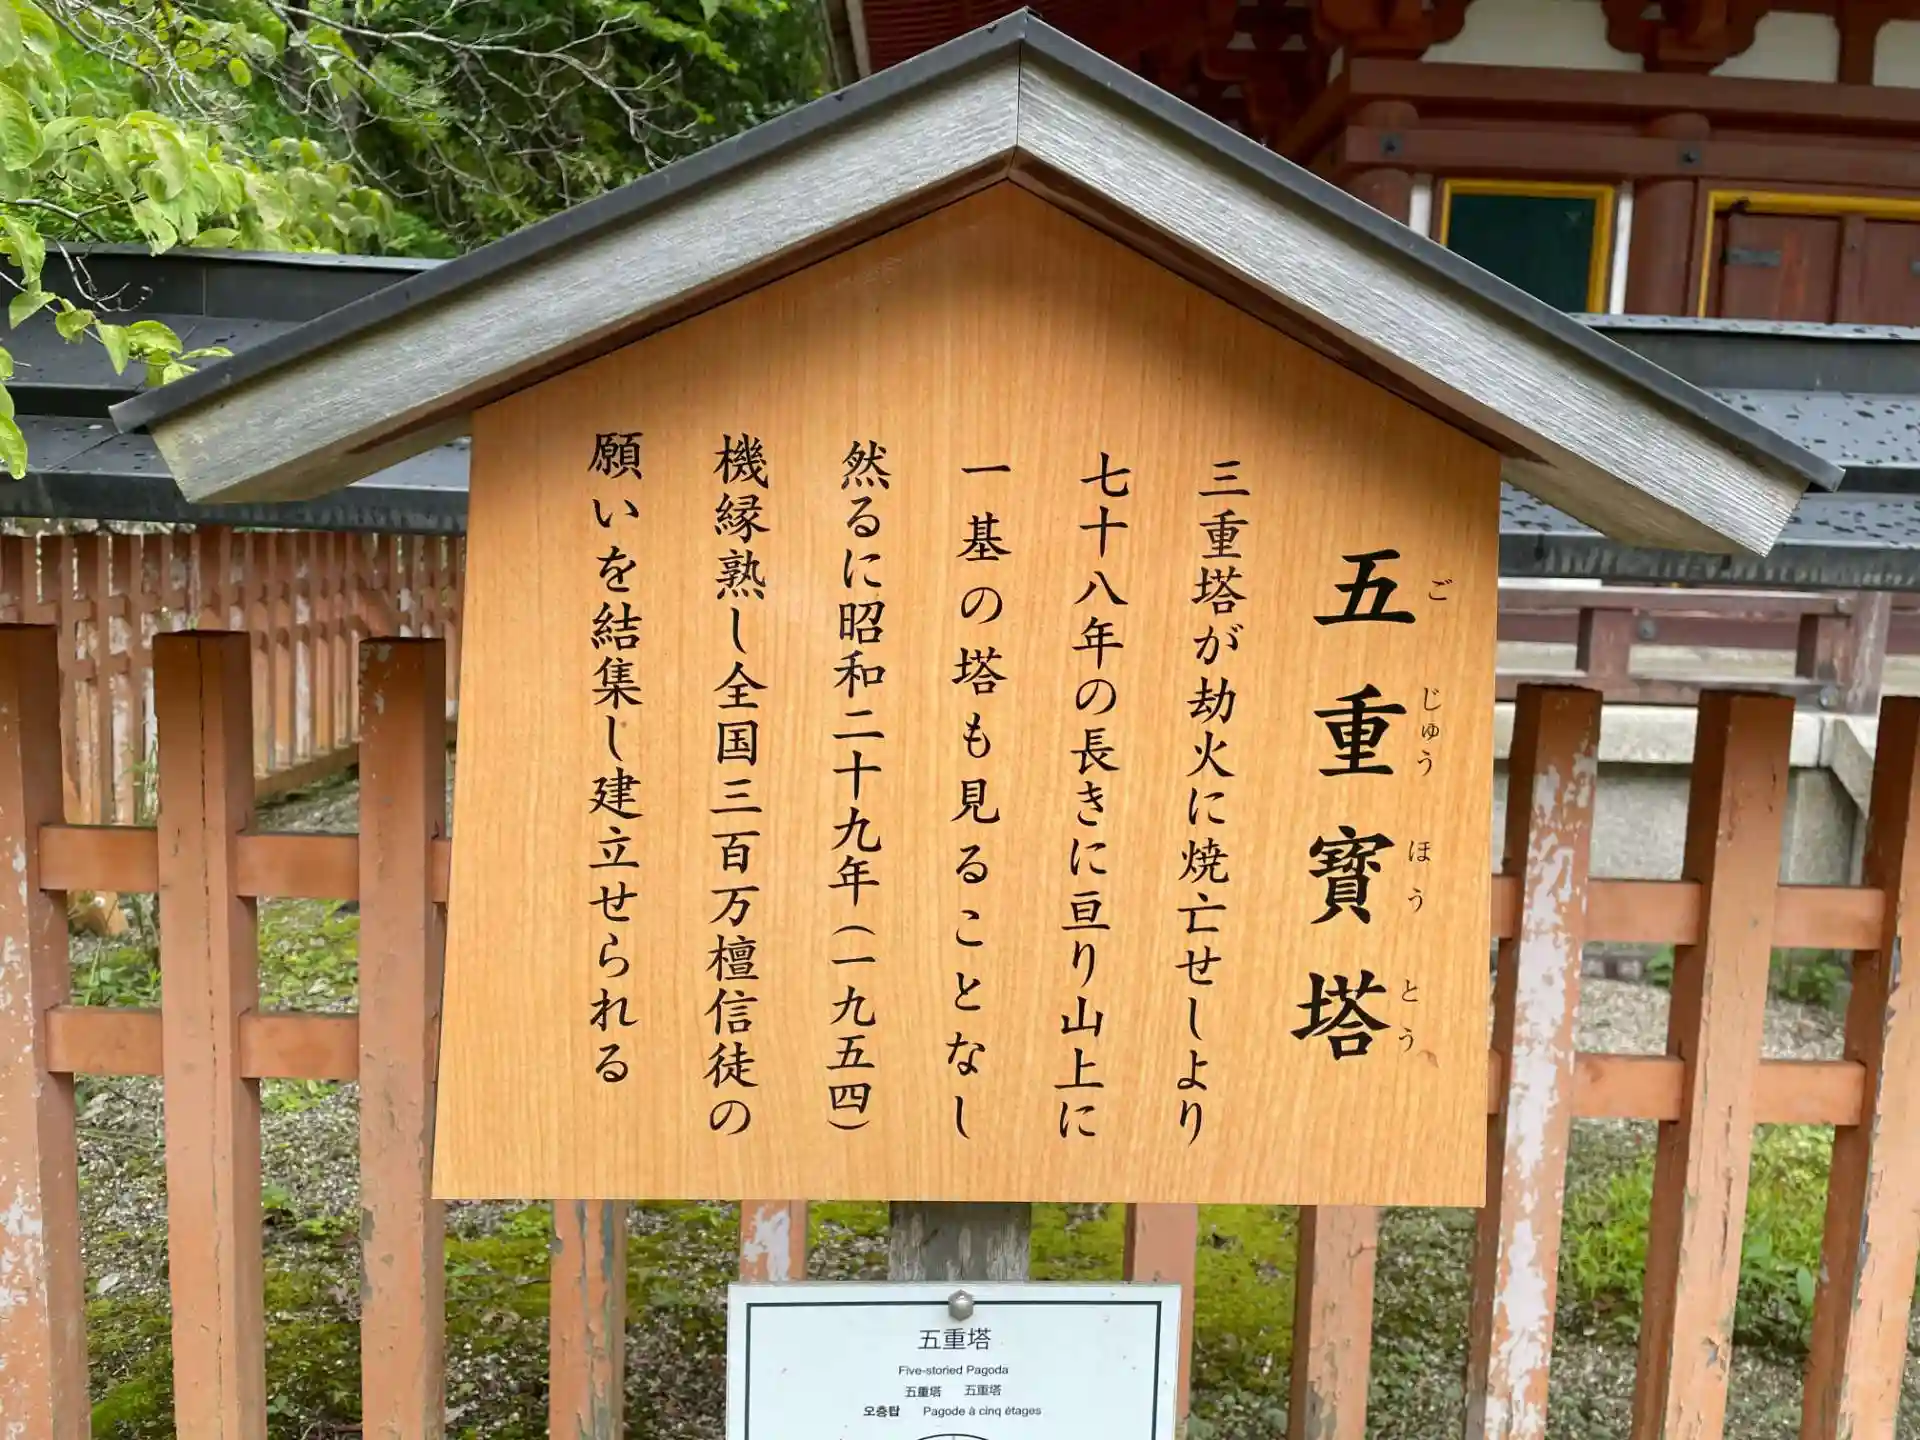 五重寶塔
ごじゅうほうとう
三重塔が劫火に焼亡せしより
七十八年の長きに亘り山上に
一基の塔も見ることなし
然るに昭和二十九年(一九五四)
機縁熟し全国三百万檀信徒の
願いを結集し建立せられる
五重塔
Five-storied Pagoda
五重塔 五重塔
오층탑 Pagode à cinq étages